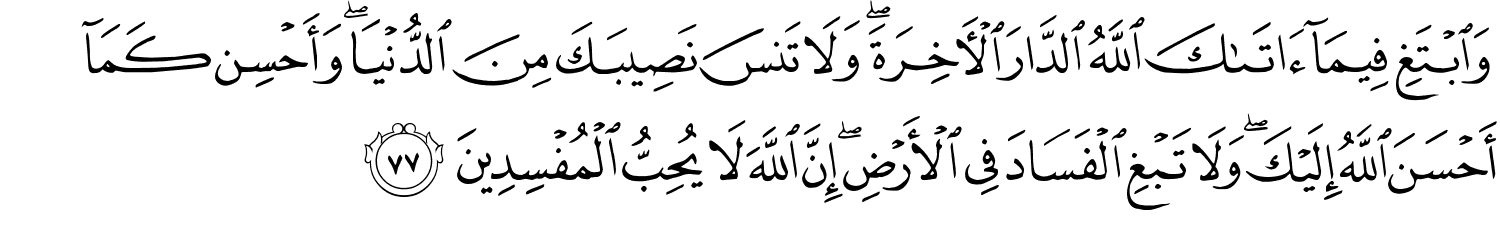 وَٱبْتَغِ فِيمَآ ءَاتَىٰكَ ٱللَّهُ ٱلدَّارَ ٱلْأَخِرَةَ ۖ وَلَا تَنسَ نَصِيبَكَ مِنَ ٱلدُّنْيَا ۖ وَأَحْسِن كَمَآ
أَحْسَنَ ٱللَّهُ إِلَيْكَ ۖ وَلَا تَبْغِ ٱلْفَسَادَ فِى ٱلْأَرْضِ ۖ إِنَّ ٱللَّهَ لَا يُحِبُّ ٱلْمُفْسِدِينَ ٧٧